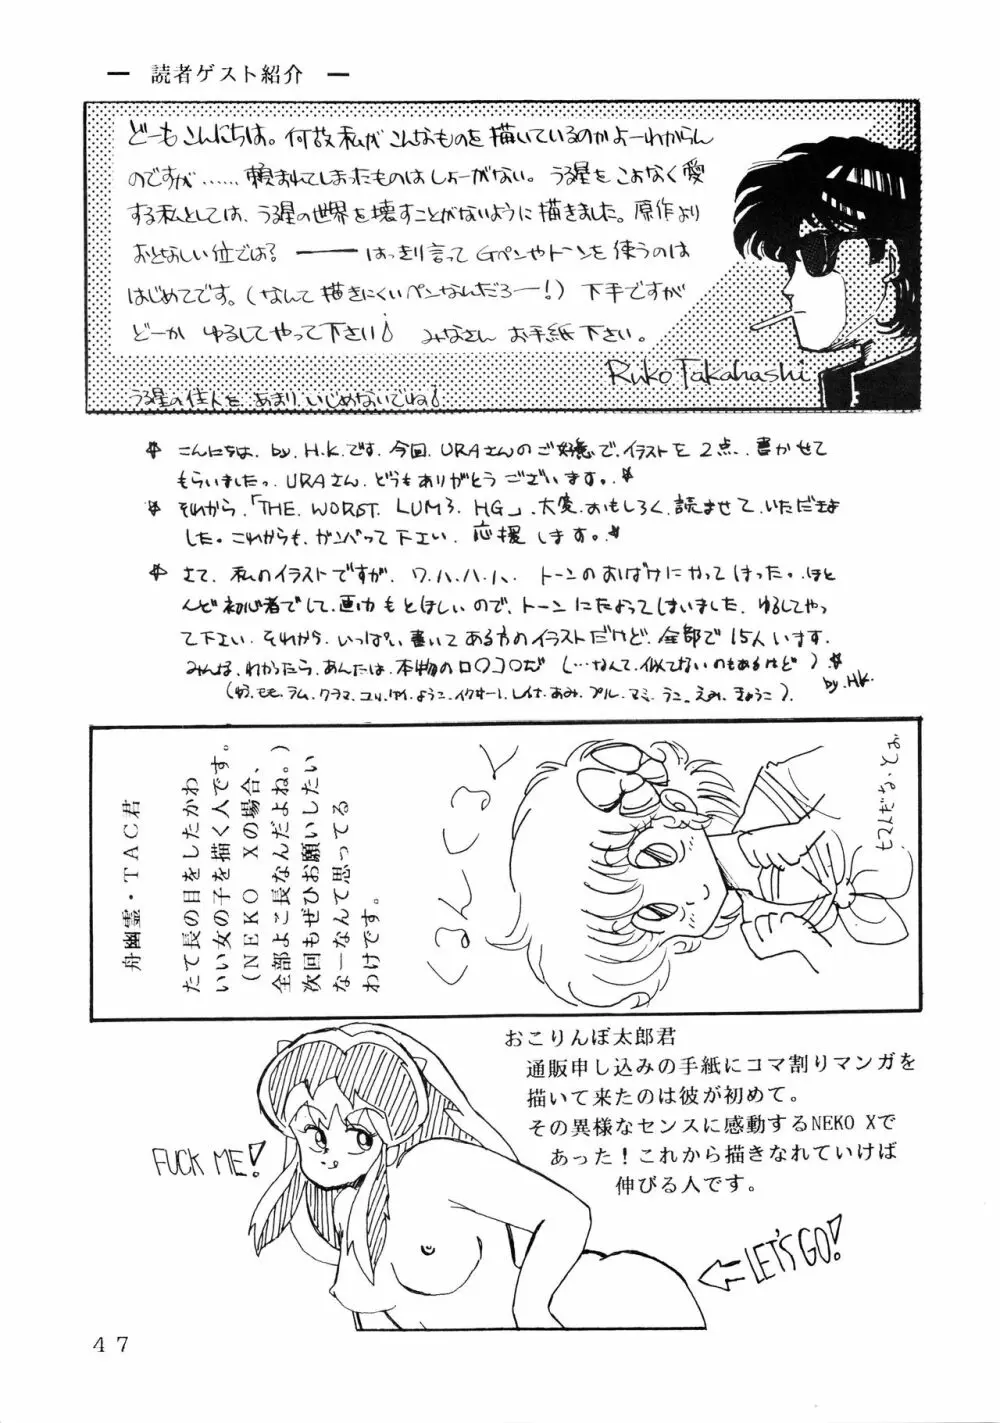 ― 読者ゲスト紹介 ―
どーもこんにちは。何故私がこんなものを描いているのかよーわからん
のですが……頼まれてしまったものはしょーがない。うる星をこよなく愛
する私としては、うる星の世界を壊すことがないように描きました。原作より
おとなしい位では? ――はっきり言ってGペンやトーンを使うのは
はじめてです。(なんて描きにくいペンなんだろー!)下手ですが
どーか ゆるしてやって下さい♪ みなさん お手紙下さい。
Ruko Takahashi
うる星の住人を あまり いじめないでね♪
☆ こんにちは、by.H.K.です、今回、URAさんのご好意で、イラストを2点、書かせて
もらいましたっ、URAさん、どうもありがとうございます。☆
☆ それから、「THE WORST LUM3. HG」、大変、おもしろく、読ませて、いただきま
した。これからも、ガンバって下エい、応援します。☆
☆ さて、私のイラストですが、ワ、ハ、ハ、ハ、トーンのおばけにやってしまった。ほと
んど初心者でして、画力もとぼしいので、トーンにたよってしまいました、ゆるしてやっ
て下エい、それから、いっぱい、書いてある方のイラストだけど、全部で15人います、
みんな、わかったら、あんたは、本物のロ〇コ〇だ (…なんて、似てないのもあるけど)☆
by.H.K.
モモ、ラム、クラマ、ユリ、ようこ、あみ、プル、マミ、えみ、きょうこ)、
しくるくる
くるんくるん
もてんだな、とお
舟幽霊・TAC君
たて長の目をしたかわ
いい女の子を描く人です。
(NEKO Xの場合、
全部よこ長なんだよね。)
次回もぜひお願いしたい
なーなんて思ってる
わけです。
おこりんぼ太郎君
通販申し込みの手紙にコマ割りマンガを
描いて来たのは彼が初めて。
その異様なセンスに感動するNEKO Xで
あった!これから描きなれていけば
伸びる人です。
FUCK ME!
LET'S GO!
47